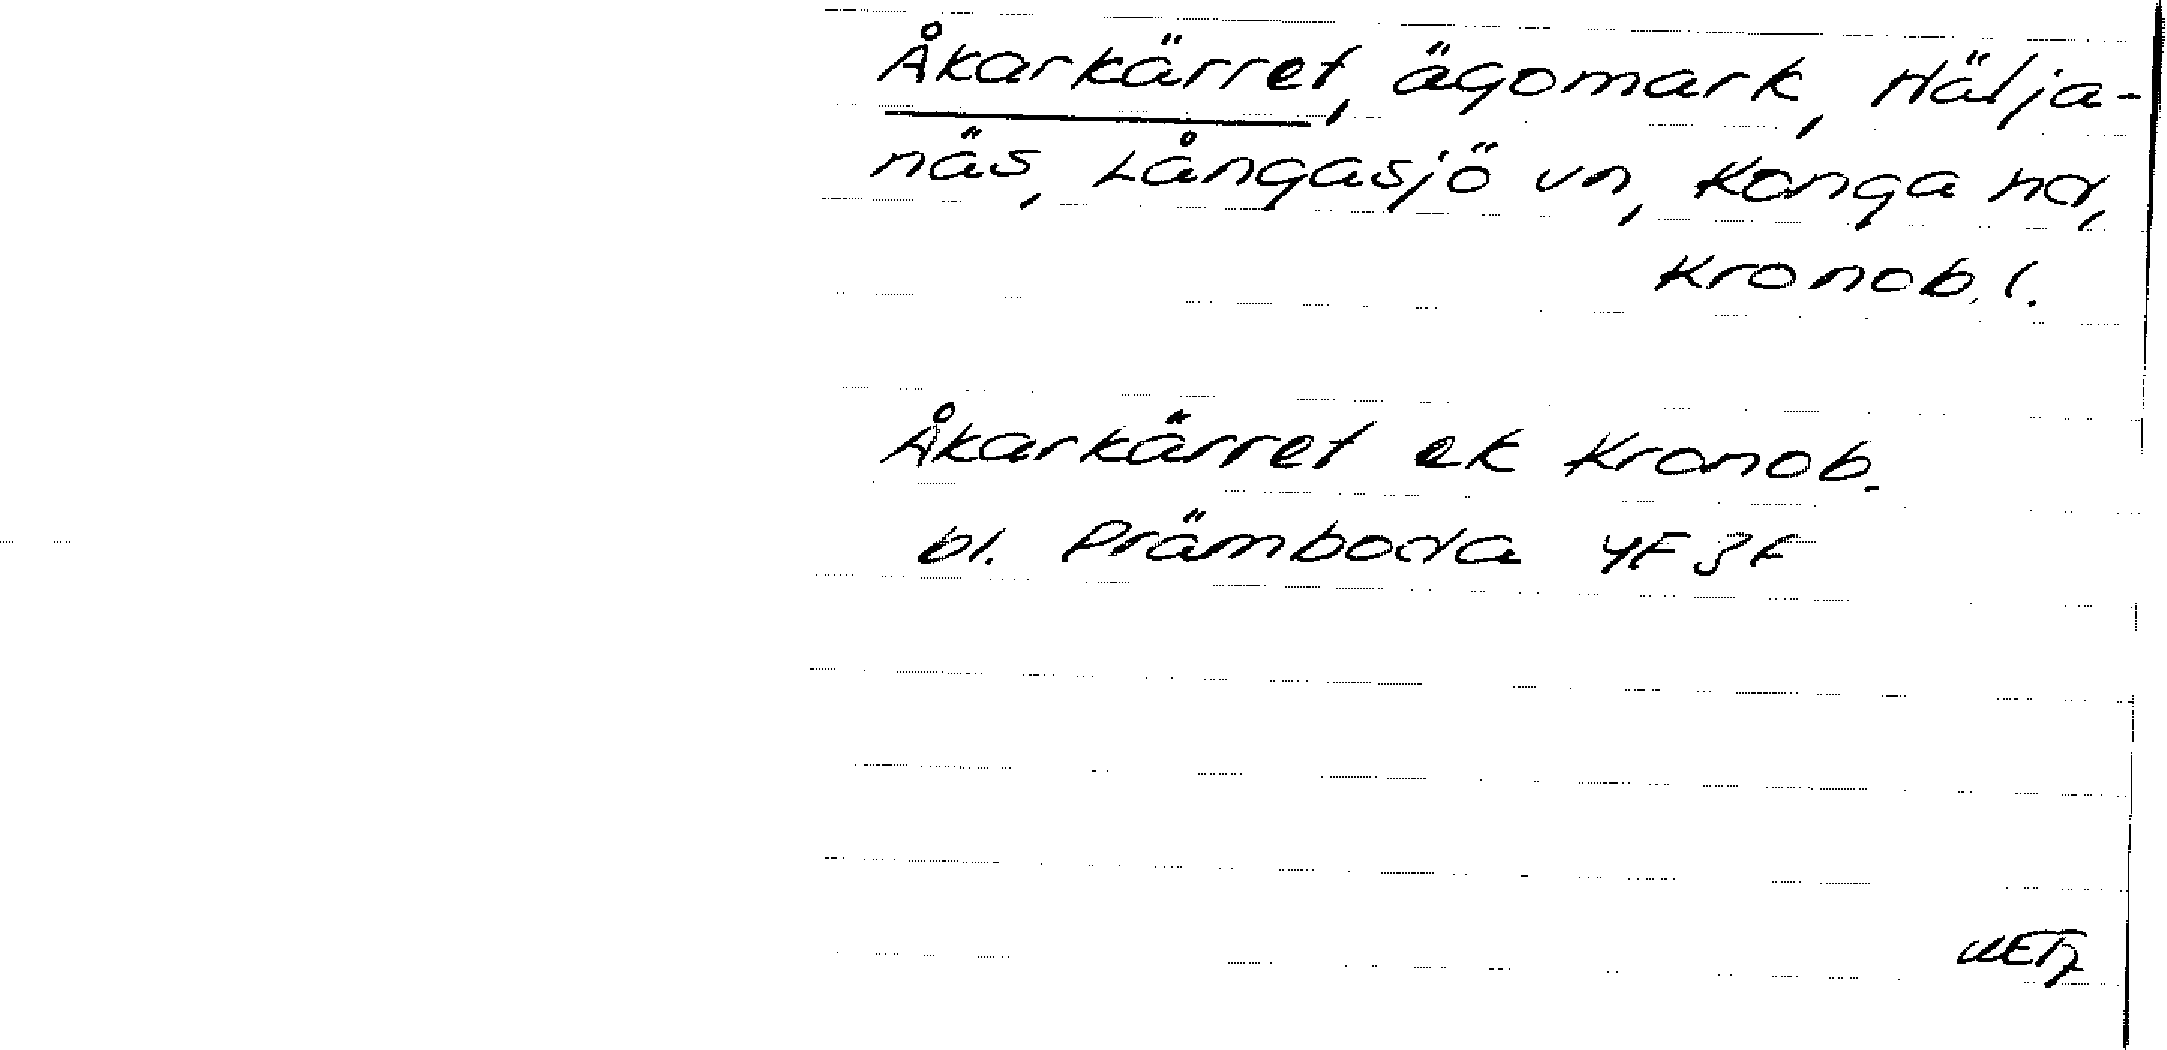 Åkarkärret, ägomark, Hälja-
näs, Långasjö sn, Konga hd,
Kronob. l.
Åkarkärret ek Kronob.
bl. Främboda 4F3f